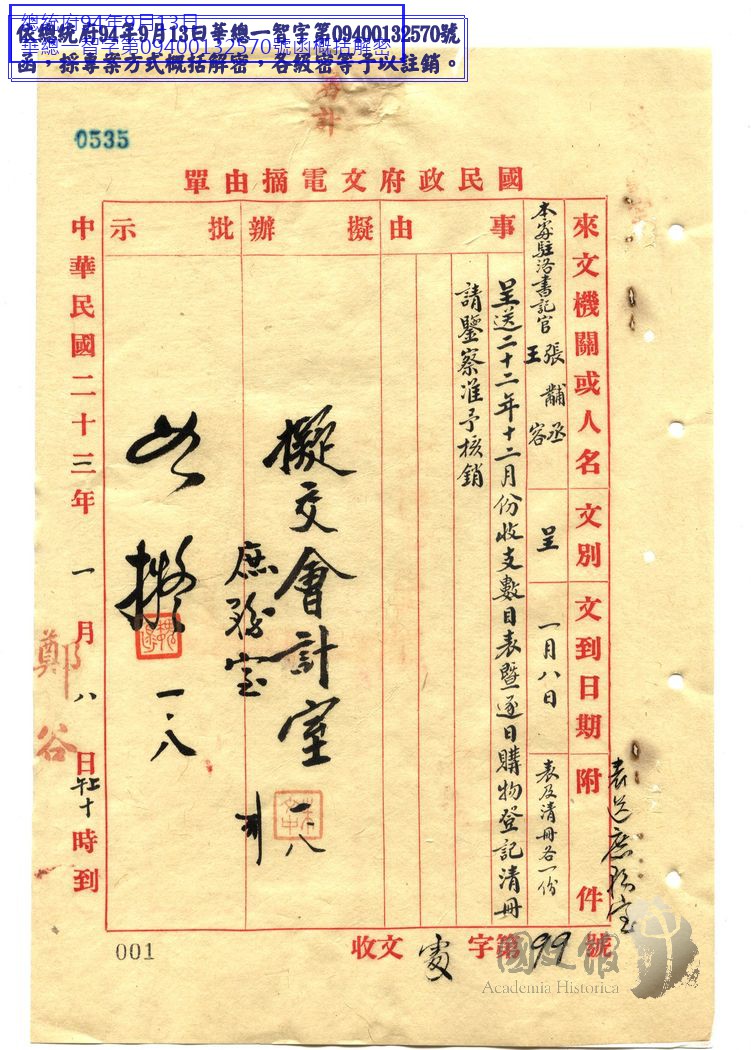 總統府94年9月13日
華總一智字第09400132570號函概括解密
依總統府94年9月13日華總一智字第09400132570號
函，採專案方式概括解密，各級密等予以註銷。
0535
國民政府文電摘由單
來文機關或人名
本處駐洛書記官
張黼丞
王容
文別
呈
文到日期
一月八日
附件
表及清冊各一份
表送庶務室
事由
呈送二十二年十二月份收支數目表暨逐日購物登記清冊
請鑒察准予核銷
擬辦
擬交會計室
庶務室
一、八
批示
如擬
一、八
中華民國二十三年一月八日 十時到
鄭谷
收文處字第99號
001
國史館
Academia Historica